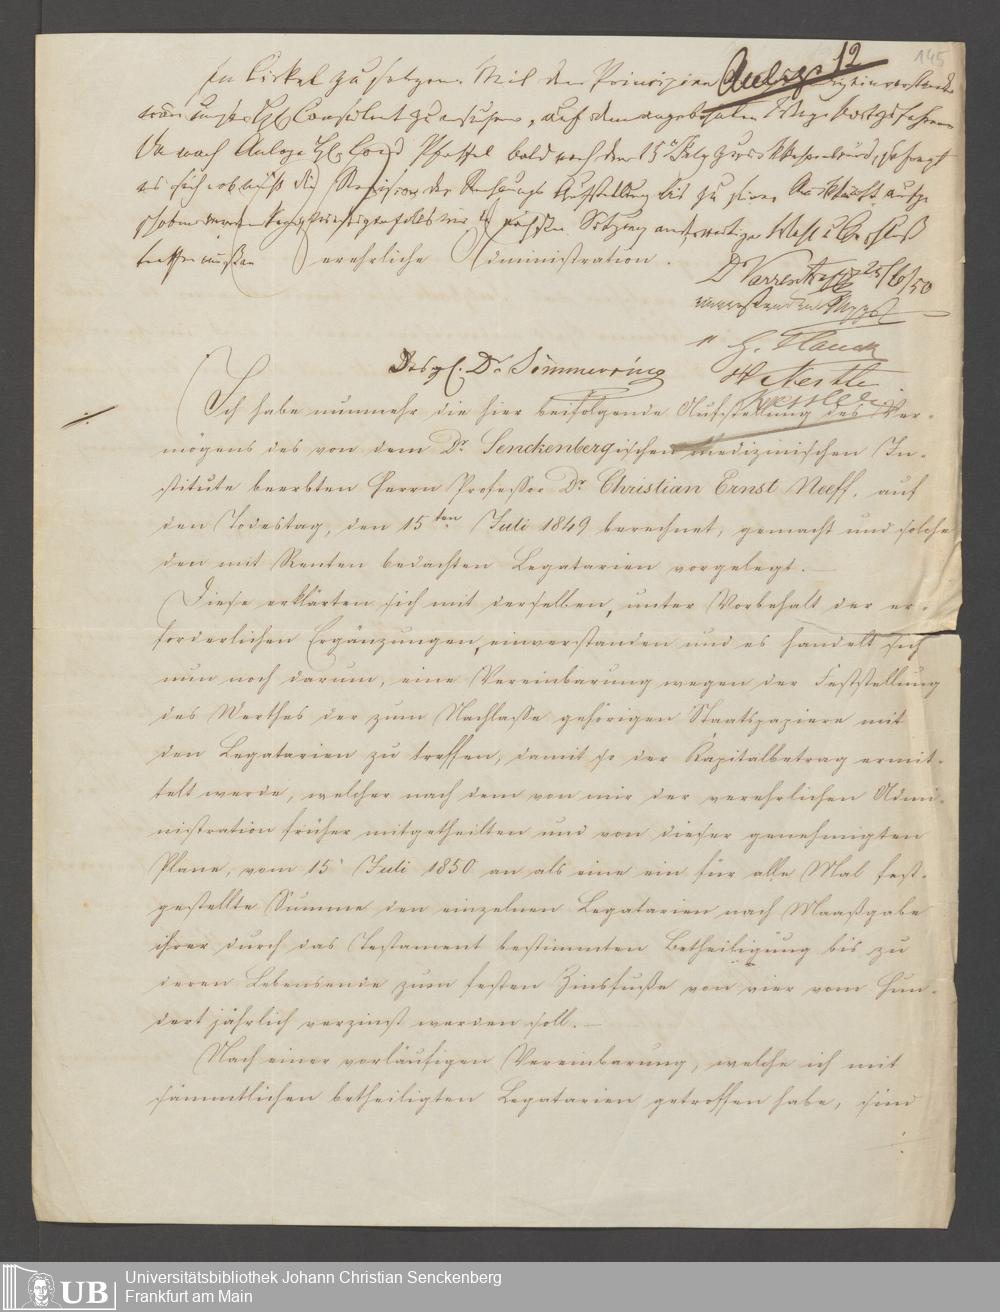 145
Anlage 12
In Cirkel zu setzen. Mit den Principien
Consulent zu ersuchen, auf dem angebahnten Wege fortzufahren
Da nach Anlage
es sich ob nicht die Revision der Rechnungs Aufstellung bis zu seiner Rückkunft
nächsten Sitzung anderweitige Wahl
treffen müßten
Verehrliche Administration.
Dr Varrentrapp 25/6/50
einverstanden
" G. Flauck
H Nestle
Kessler
Desgl. Dr Sömmerring
Ich habe nunmehr die hier beifolgende Aufstellung des Ver-
mögens des von dem Dr Senckenbergischen medizinischen In-
stitute beerbten Herrn Professor Dr Christian Ernst Neeff, auf
den Todestag, den 15ten Juli 1849 berechnet, gemacht und solche
den mit Renten bedachten Legatarien vorgelegt. —
Diese erklärten sich mit derselben, unter Vorbehalt der er-
forderlichen Ergänzungen, einverstanden und es handelt sich
nun noch darum, eine Vereinbarung wegen der Feststellung
des Werthes der zum Nachlasse gehörigen Staatspapiere mit
den Legatarien zu treffen, damit so der Kapitalbetrag ermit-
telt werde, welcher nach dem von mir der verehrlichen Admi-
nistration früher mitgetheilten und von dieser genehmigten
Plane, vom 15 Juli 1850 an als eine ein für alle Mal fest-
gestellte Summe den einzelnen Legatarien nach Maaßgabe
ihrer durch das Testament bestimmten Betheiligung bis zu
deren Lebensende zum festen Zinsfuße von vier vom Hun-
dert jährlich verzinst werden soll. —
Nach einer vorläufigen Vereinbarung, welche ich mit
sämmtlichen betheiligten Legatarien getroffen habe, sind
UB
Universitätsbibliothek Johann Christian Senckenberg
Frankfurt am Main